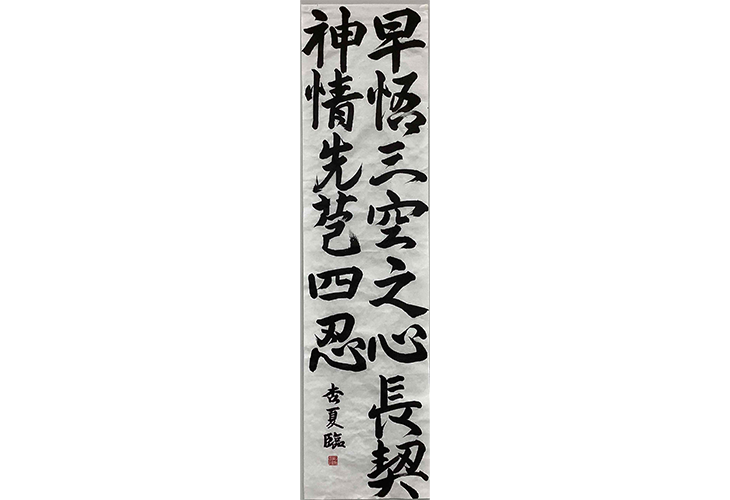 早悟三空之心長契
神情先苞四忍
杏夏臨